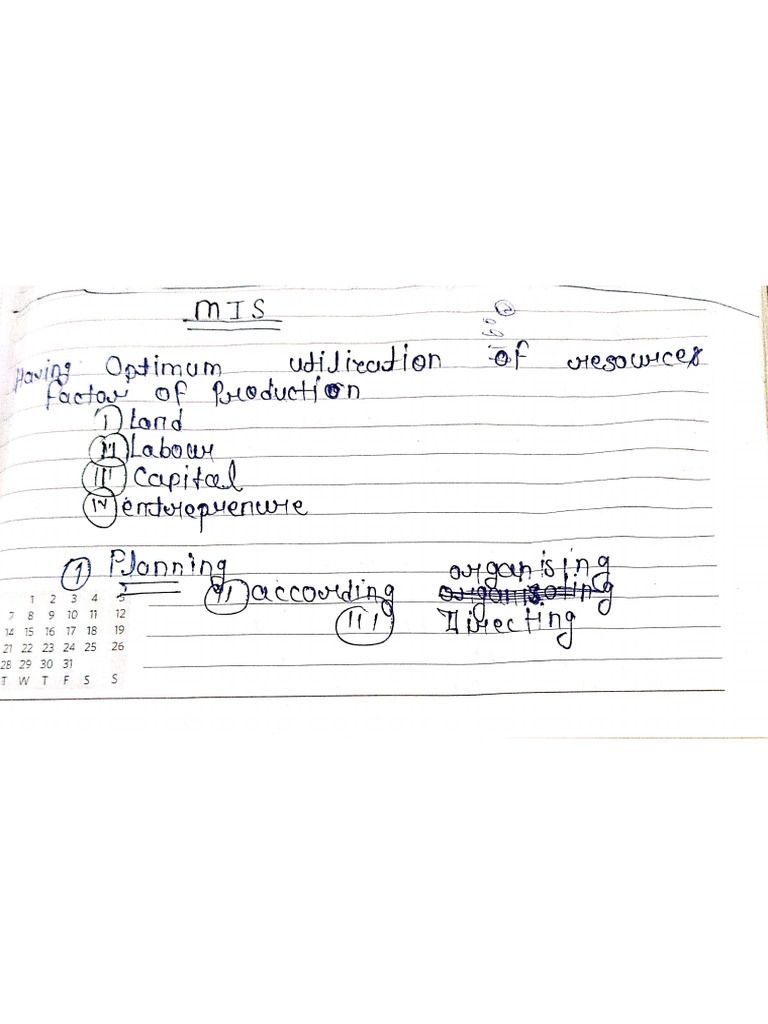 MIS
Having Optimum utilization of resources
factor of Production
I Land
II Labour
III Capital
IV entreprenure
I Planning organising
II according
III Directing
1 2 3 4 5
7 8 9 10 11 12
14 15 16 17 18 19
21 22 23 24 25 26
28 29 30 31
T W T F S S